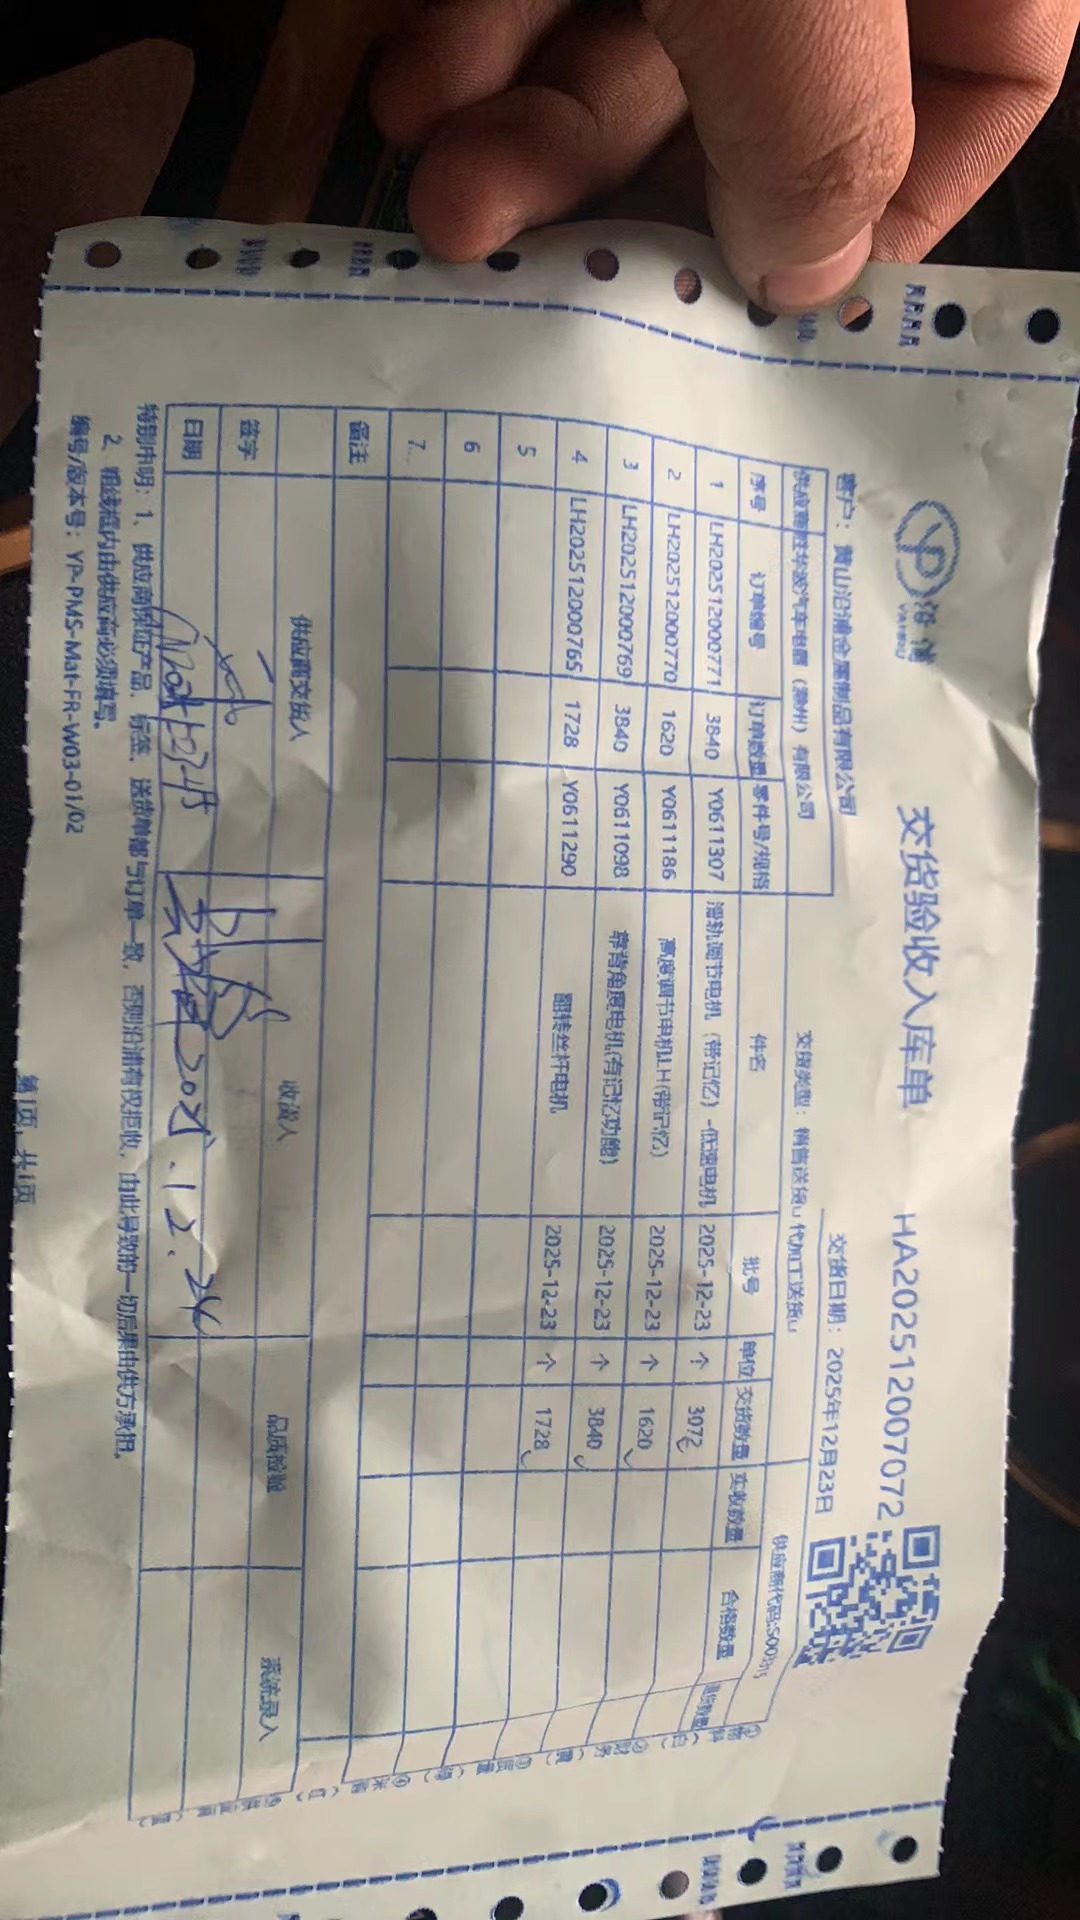 沿浦
YANPU
交货验收入库单
HA202512007072
客户：黄山沿浦金属制品有限公司
交货日期：2025年12月23日
华波汽车电器（滁州）有限公司 交货类型：销售送货u 代加工送货u 供应商代码:S00
序号 订单编号 订单数量 零件号/规格 件名 批号 单位 交货数量 实收数量 合格数量 退货数量
1 LH202512000771 3840 Y0611307 滑轨调节电机（带记忆）-低速电机 2025-12-23 个 3072
2 LH202512000770 1620 Y0611186 高度调节电机LH(带记忆) 2025-12-23 个 1620
3 LH202512000769 3840 Y0611098 靠背角度电机(有记忆功能) 2025-12-23 个 3840
4 LH202512000765 1728 Y0611290 翻转丝杆电机 2025-12-23 个 1728
5
6
7...
备注
供应商交货人 收货人 品质检验 系统录入
签字
日期 2025.12.24
特别申明：1、供应商保证产品、标签、送货单都与订单一致，否则沿浦有权拒收，由此导致的一切后果由供方承担。
2、粗线框内由供应商必须填写。
编号/版本号：YP-PMS-Mat-FR-W03-01/02
第1页，共1页
①物料（白）②财务（黄）③质量（绿）④采购（红）⑤供应商（蓝）